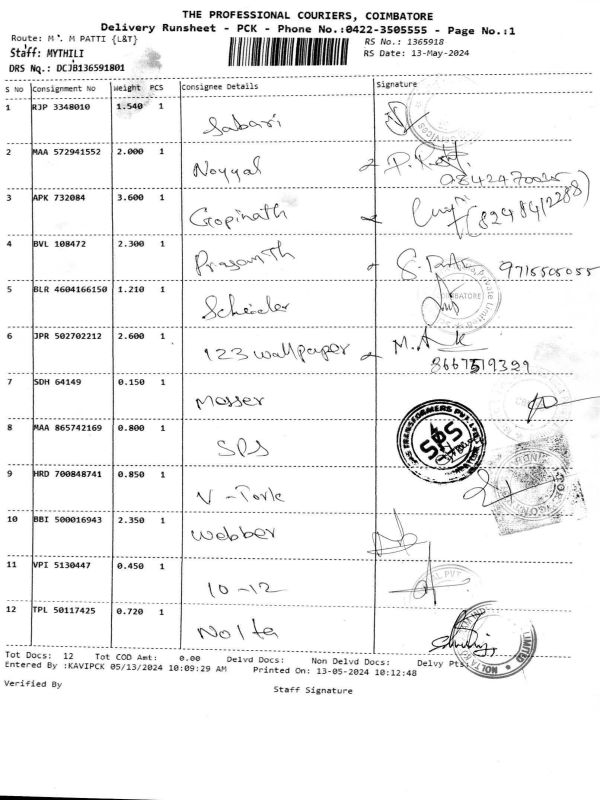 THE PROFESSIONAL COURIERS, COIMBATORE
Delivery Runsheet - PCK - Phone No.:0422-3505555 - Page No.:1
Route: M M PATTI {L&T}
RS No.: 1365918
Staff: MYTHILI
RS Date: 13-May-2024
DRS No.: DCJB136591801
S No Consignment No Weight PCS Consignee Details Signature
1 RJP 3348010 1.540 1 Sabari
2 MAA 572941552 2.000 1 Noyyal
3 APK 732084 3.600 1 Gopinath (8248412288)
4 BVL 108472 2.300 1 Prasanth 9715505055
5 BLR 4604166150 1.210 1
COIMBATORE
6 JPR 502702212 2.600 1 123 wallpaper
8667519329
7 SDH 64149 0.150 1 Messer
8 MAA 865742169 0.800 1 SPS
TRANSFORMERS PVT. LTD
SPS
9 HRD 700848741 0.850 1 V-Tork
10 BBI 500016943 2.350 1 Webber
11 VPI 5130447 0.450 1 10-12
12 TPL 50117425 0.720 1 Nolta
NOLTA LIMITED
Tot Docs: 12 Tot COD Amt: 0.00 Delvd Docs: Non Delvd Docs: Delvy Pts:
Entered By :KAVIPCK 05/13/2024 10:09:29 AM Printed On: 13-05-2024 10:12:48
Verified By
Staff Signature